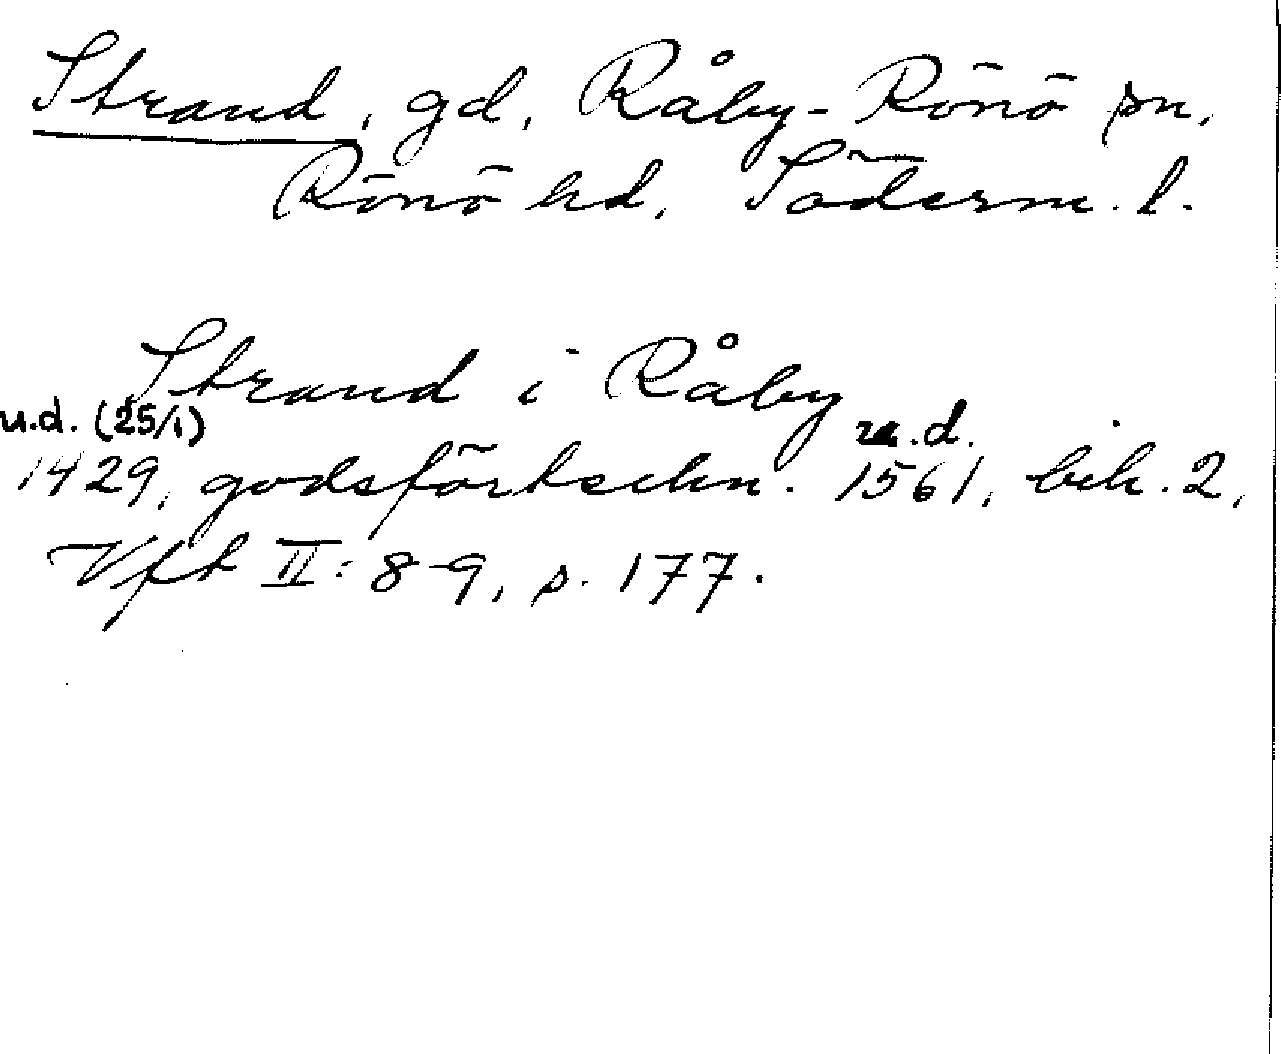 Strand, gd, Råby-Rönö sn,
Rönö hd, Söderm. l.
Strand i Råby
u.d. (25/1) u.d.
1429, godsförteckn. 1561, bih. 2,
Vfk II: 8-9, s. 177.